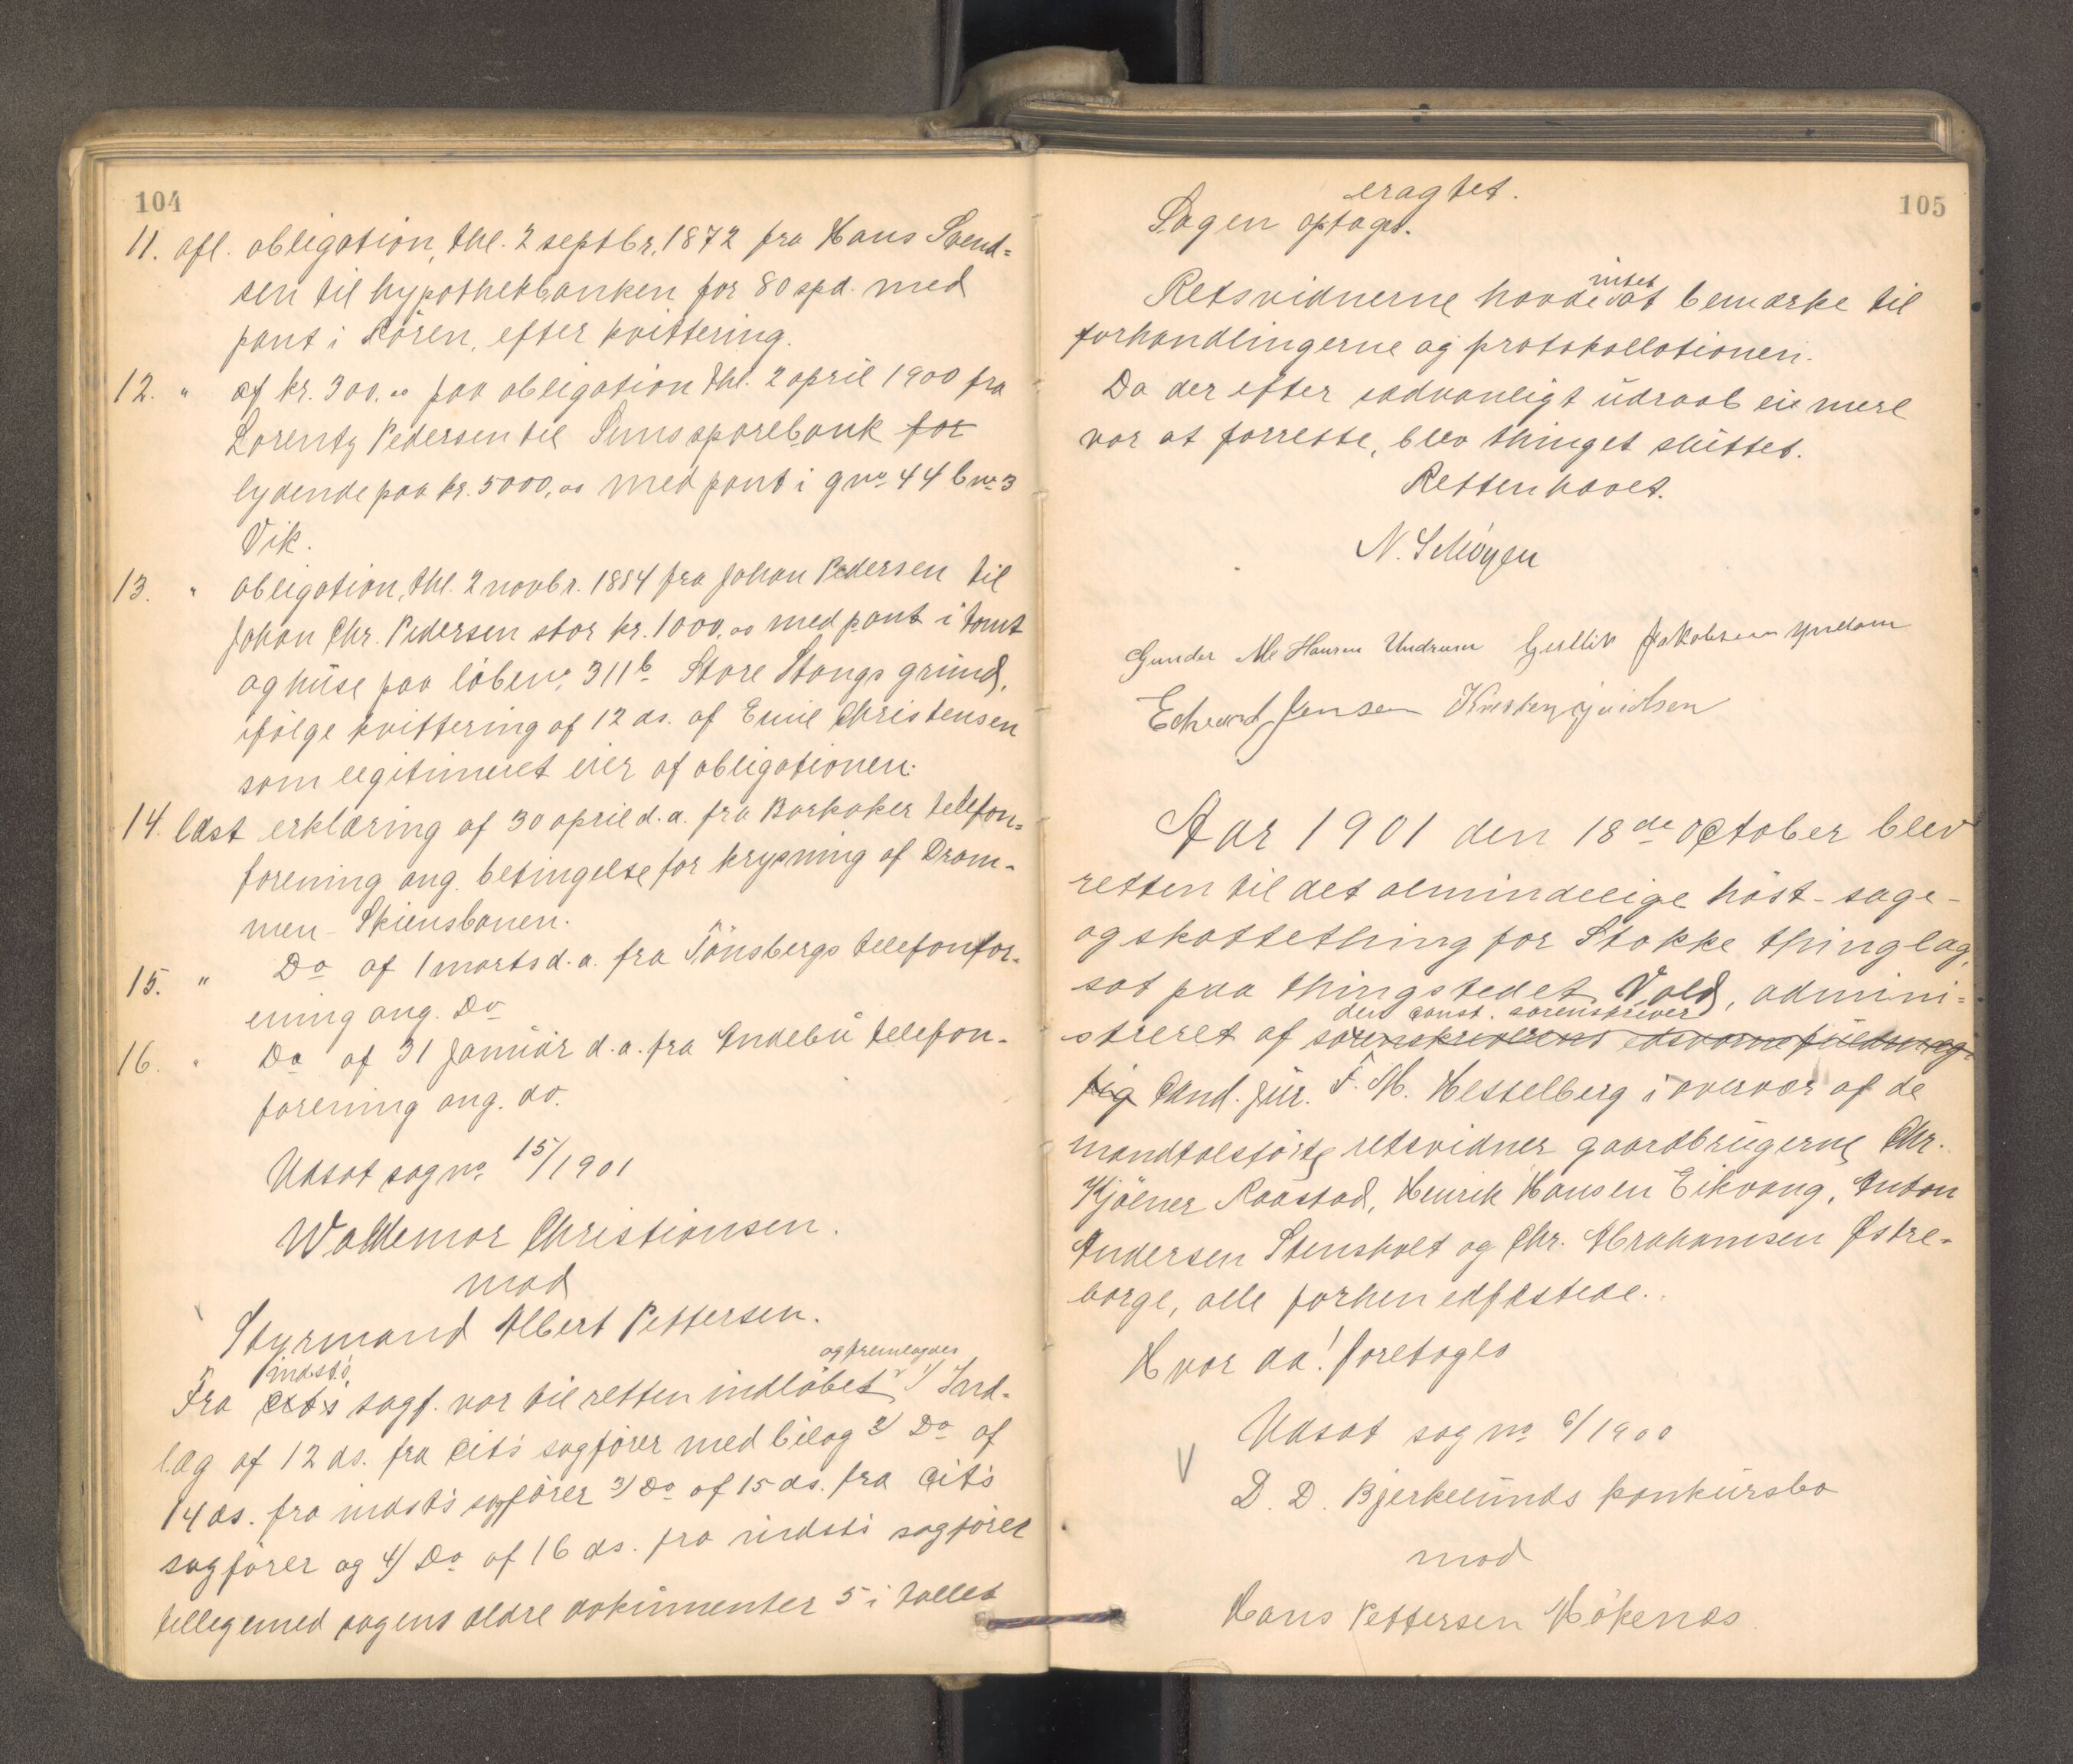 104
11. afl. obligation, thl. 2 septbr. 1872 fra Hans Svend=
sen til hypothekbanken for 80 spd. med
pant i Rören, efter kvittering.
12. " af kr. 300.00 paa obligation thl. 2 april 1900 fra
Lorentz Pedersen til Sems sparebank for
lydende paa kr. 5000,00 med pant i gno. 44 bno. 3
Vik.
13. " obligation, thl. 2 novbr. 1884 fra Johan Pedersen til
Johan Chr. Pedersen stor kr. 1000,00 med pant i tomt
og huse paa löbeno. 311b Store Stangs grund,
ifölge kvittering af 12 ds. af Emil Christensen
som legitimeret eier af obligationen.
14. læst erklæring af 30 april d. a. fra Barkaker telefon=
forening ang. betingelse for krysning af Dram-
men-Skiensbanen.
15. " Do af 1 marts d. a. fra Tönsbergs telefonfor-
ening ang. Do
16. " Do af 31 januar d. a. fra Andebu telefon-
forening ang. do.
Udsat sag no. 15/1901
Waldemar Christiansen.
mod
Styrmand Albert Pettersen.
indst's og fremlagdes
Fra cit's sagf. var til retten indlöbet 1/ Ind-
læg af 12 ds. fra cit's sagförer med bilag 2/ Do af
14 ds. fra indst's sagförer 3/ Do af 15 ds. fra cit's
sagförer og 4/ Do af 16 ds. fra indst's sagförer
tilligemed sagens ældre dokumenter 5 i tallet
105
eragtet.
Sagen optaget.
intet
Retsvidnerne havde at bemærke til
forhandlingerne og protokollationen.
Da der efter sædvanligt udraab ei mere
var at forrette, blev thinget sluttet.
Retten hævet.
N. Schöyen
Gunder M Hansen Undrum Gulliv Jakobsen
Edvard Jensen
Aar 1901 den 18de october blev
retten til det almindelige höst-sage-
og skattething for Stokke thinglag,
sat paa thingstedet Vold, admini=
den const. sorenskriver
streret af sorenskriverens edsvorne fuldmæg-
tig Cand. jur. F. M. Hesselberg i overvær af de
mandtalsförte retsvidner gaardbrugerne Chr.
Kjölner Raastad, Henrik Hansen Eikvang, Anton
Andersen Stensholt og Chr. Abrahamsen Østre-
borge, alle forhen edfæstede.
Hvor da! foretoges
Udsat sag no 6/1900
V
D. D. Bjerkelunds konkursbo
mod
Hans Pettersen Hökenæs